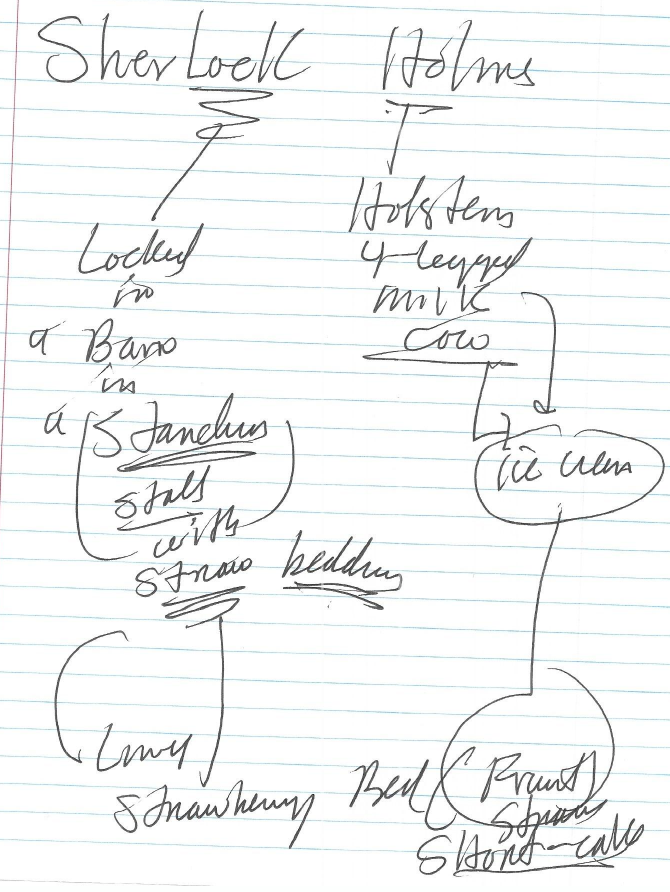 SherLock Holms
Locked
in
a Barn
in
a Standing
stall
with
straw bedding
Holstens
4-legged
milk
Coco
ice cream
strawberry Bed
Fruit
straw
Short-cake